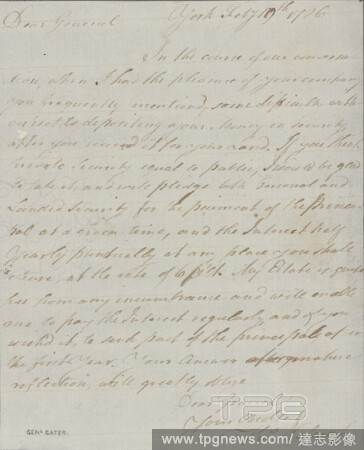 Dear General York Feby 19th 1776
In the course of our conversa
tion, when I had the pleasure of your company
you frequently mentioned, some difficulty with
respect to depositing your Money on security
after you received it for your Land. If you think
private Security equal to public, I would be glad
to take it, and will pledge both Personal and
Landed Security for the payment of the Princi
pal at a given time, and the Interest half
Yearly punctually at any place you shall
chuse, at the rate of 6 P Ct. My Estate is
free from any incumbrance and will enable
me to pay the Interest regularly and if you
wish it, to sink part of the principal in
the first Year. Your Answer after mature
reflection, will greatly oblige
Dear General
Your
GENL GATES.
TPG
www.tpgnews.com/達志影像